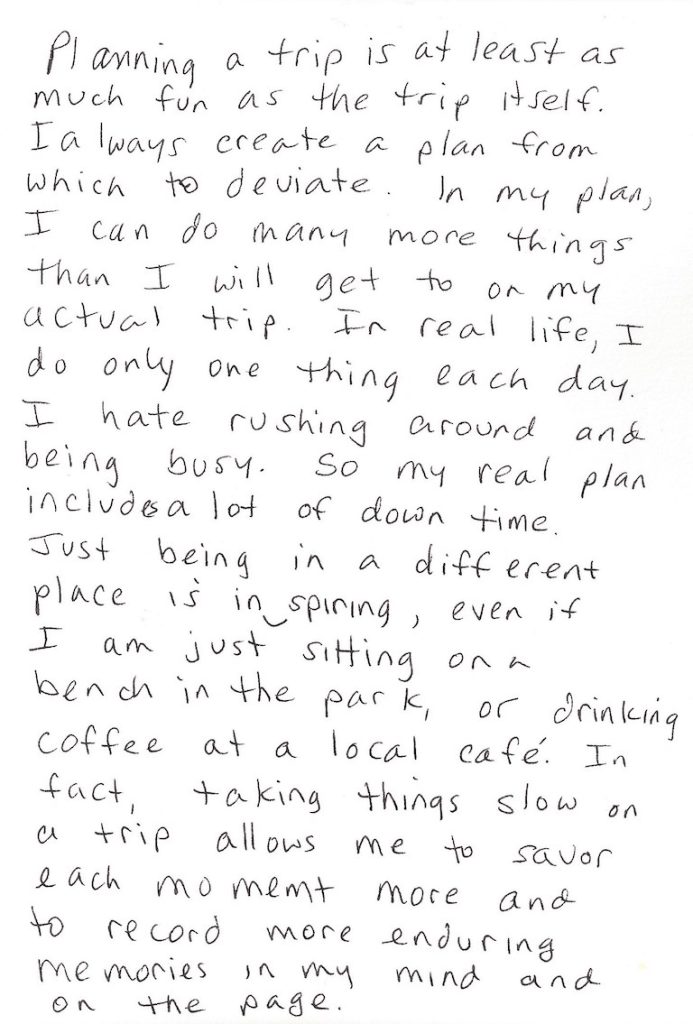 Planning a trip is at least as
much fun as the trip itself.
I always create a plan from
which to deviate. In my plan,
I can do many more things
than I will get to on my
actual trip. In real life, I
do only one thing each day.
I hate rushing around and
being busy. So my real plan
includes a lot of down time.
Just being in a different
place is inspiring, even if
I am just sitting on a
bench in the park, or drinking
coffee at a local café. In
fact, taking things slow on
a trip allows me to savor
each moment more and
to record more enduring
memories in my mind and
on the page.